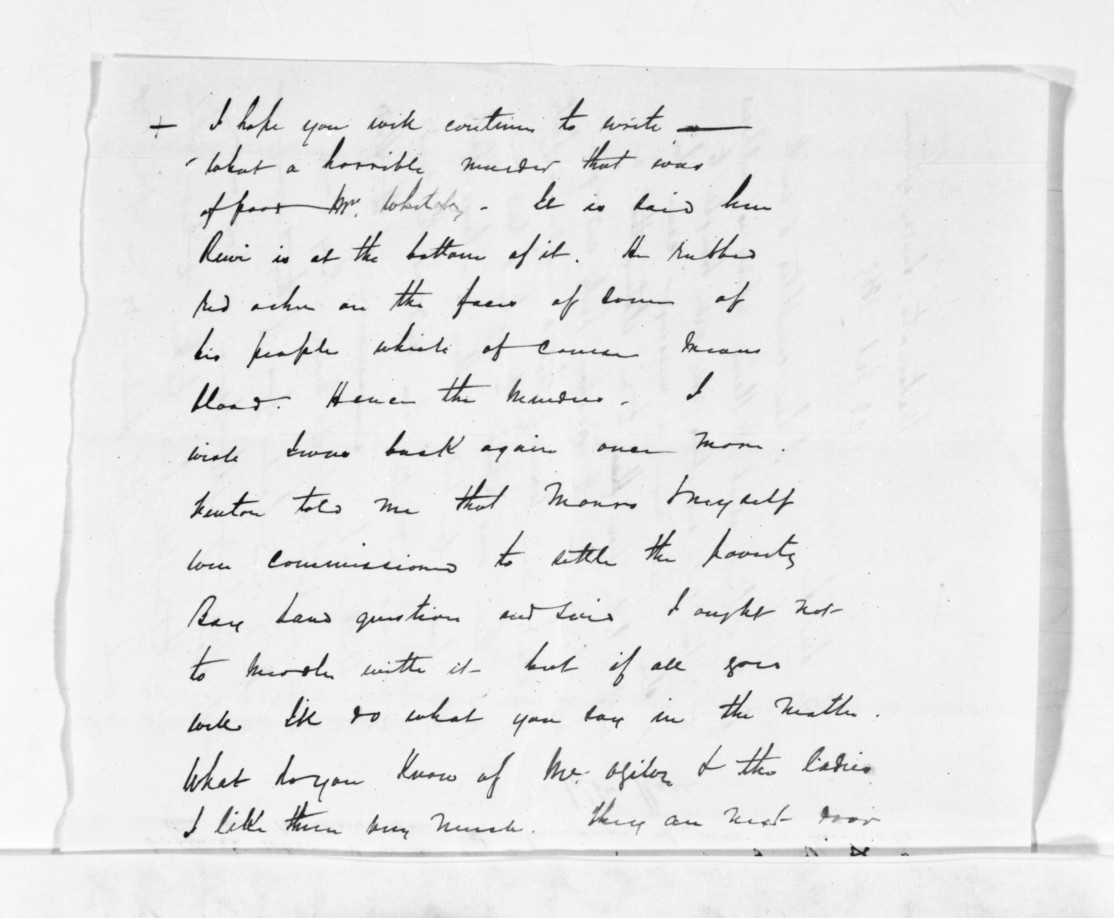 + I hope you will continue to write —
What a horrible murder that was
of poor Mr. Whiteley. It is said here
Rewi is at the bottom of it. He rubbed
red ochre on the faces of some of
his people which of course means
blood. Hence the murder. I
wish I was back again once more.
Fenton told me that Monro & myself
were commissioned to settle the Poverty
Bay Land question and said I ought not
to meddle with it but if all goes
well I'll do what you say in the matter.
What do you know of Mr. Ogilvy & the ladies
I like them very much. They are next door